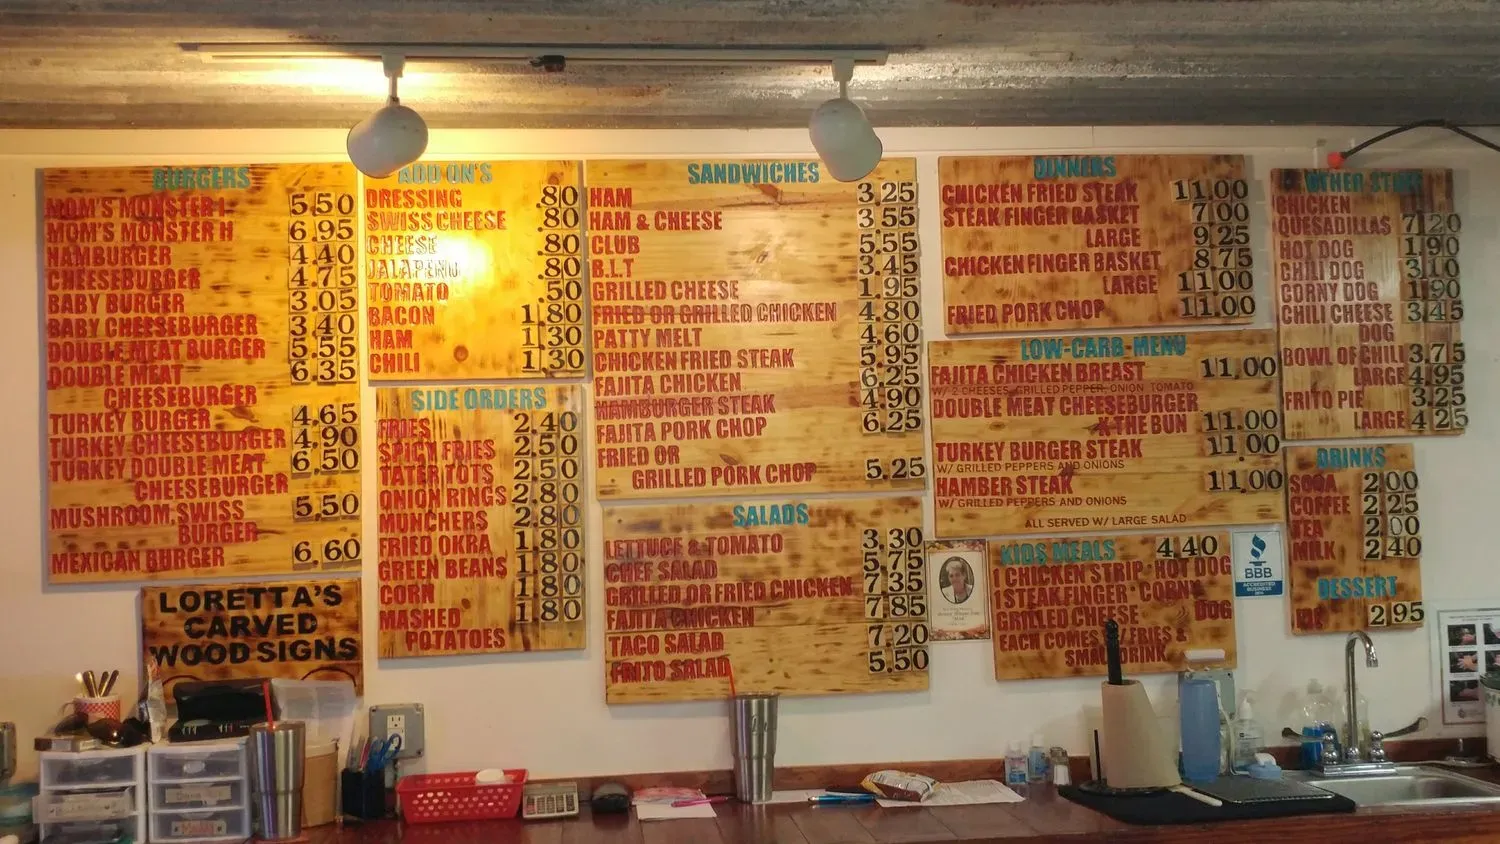 BURGERS
MOM'S MONSTER I 5.50
MOM'S MONSTER II 6.95
HAMBURGER 4.40
CHEESEBURGER 4.75
BABY BURGER 3.05
BABY CHEESEBURGER 3.40
DOUBLE MEAT BURGER 5.55
DOUBLE MEAT 6.35
CHEESEBURGER
TURKEY BURGER 4.65
TURKEY CHEESEBURGER 4.90
TURKEY DOUBLE MEAT 6.50
CHEESEBURGER
MUSHROOM, SWISS 5.50
BURGER
MEXICAN BURGER 6.60
LORETTA'S
CARVED
WOOD SIGNS
ADD ON'S
DRESSING .80
SWISS CHEESE .80
CHEESE .80
JALAPENO .80
TOMATO .50
BACON 1.80
HAM 1.30
CHILI 1.30
SIDE ORDERS
FRIES 2.40
SPICY FRIES 2.50
TATER TOTS 2.50
ONION RINGS 2.80
MUNCHERS 2.80
FRIED OKRA 1.80
GREEN BEANS 1.80
CORN 1.80
MASHED 1.80
POTATOES
SANDWICHES
HAM 3.25
HAM & CHEESE 3.55
CLUB 5.55
B.L.T 3.45
GRILLED CHEESE 1.95
FRIED OR GRILLED CHICKEN 4.80
PATTY MELT 4.60
CHICKEN FRIED STEAK 5.95
FAJITA CHICKEN 6.25
HAMBURGER STEAK 4.90
FAJITA PORK CHOP 6.25
FRIED OR
GRILLED PORK CHOP 5.25
SALADS
LETTUCE & TOMATO 3.30
CHEF SALAD 5.75
GRILLED OR FRIED CHICKEN 7.35
FAJITA CHICKEN 7.85
TACO SALAD 7.20
FRITO SALAD 5.50
DINNERS
CHICKEN FRIED STEAK 11.00
STEAK FINGER BASKET 7.00
LARGE 9.25
CHICKEN FINGER BASKET 8.75
LARGE 11.00
FRIED PORK CHOP 11.00
LOW-CARB-MENU
FAJITA CHICKEN BREAST 11.00
W/ 2 CHEESES, GRILLED PEPPER, ONION, TOMATO
DOUBLE MEAT CHEESEBURGER
X THE BUN 11.00
TURKEY BURGER STEAK 11.00
W/ GRILLED PEPPERS AND ONIONS
HAMBER STEAK 11.00
W/ GRILLED PEPPERS AND ONIONS
ALL SERVED W/ LARGE SALAD
KIDS MEALS 4.40
CHICKEN STRIP · HOT DOG
STEAK FINGER · CORNY
GRILLED CHEESE DOG
EACH COMES W/ FRIES &
SMALL DRINK
BBB
ACCREDITED
BUSINESS
OTHER STUFF
CHICKEN
QUESADILLAS 7.20
HOT DOG 1.90
CHILI DOG 3.10
CORNY DOG 1.90
CHILI CHEESE 3.45
DOG
BOWL OF CHILI 3.75
LARGE 4.95
FRITO PIE 3.25
LARGE 4.25
DRINKS
SODA 2.00
COFFEE 2.25
TEA 2.00
MILK 2.40
DESSERT
2.95